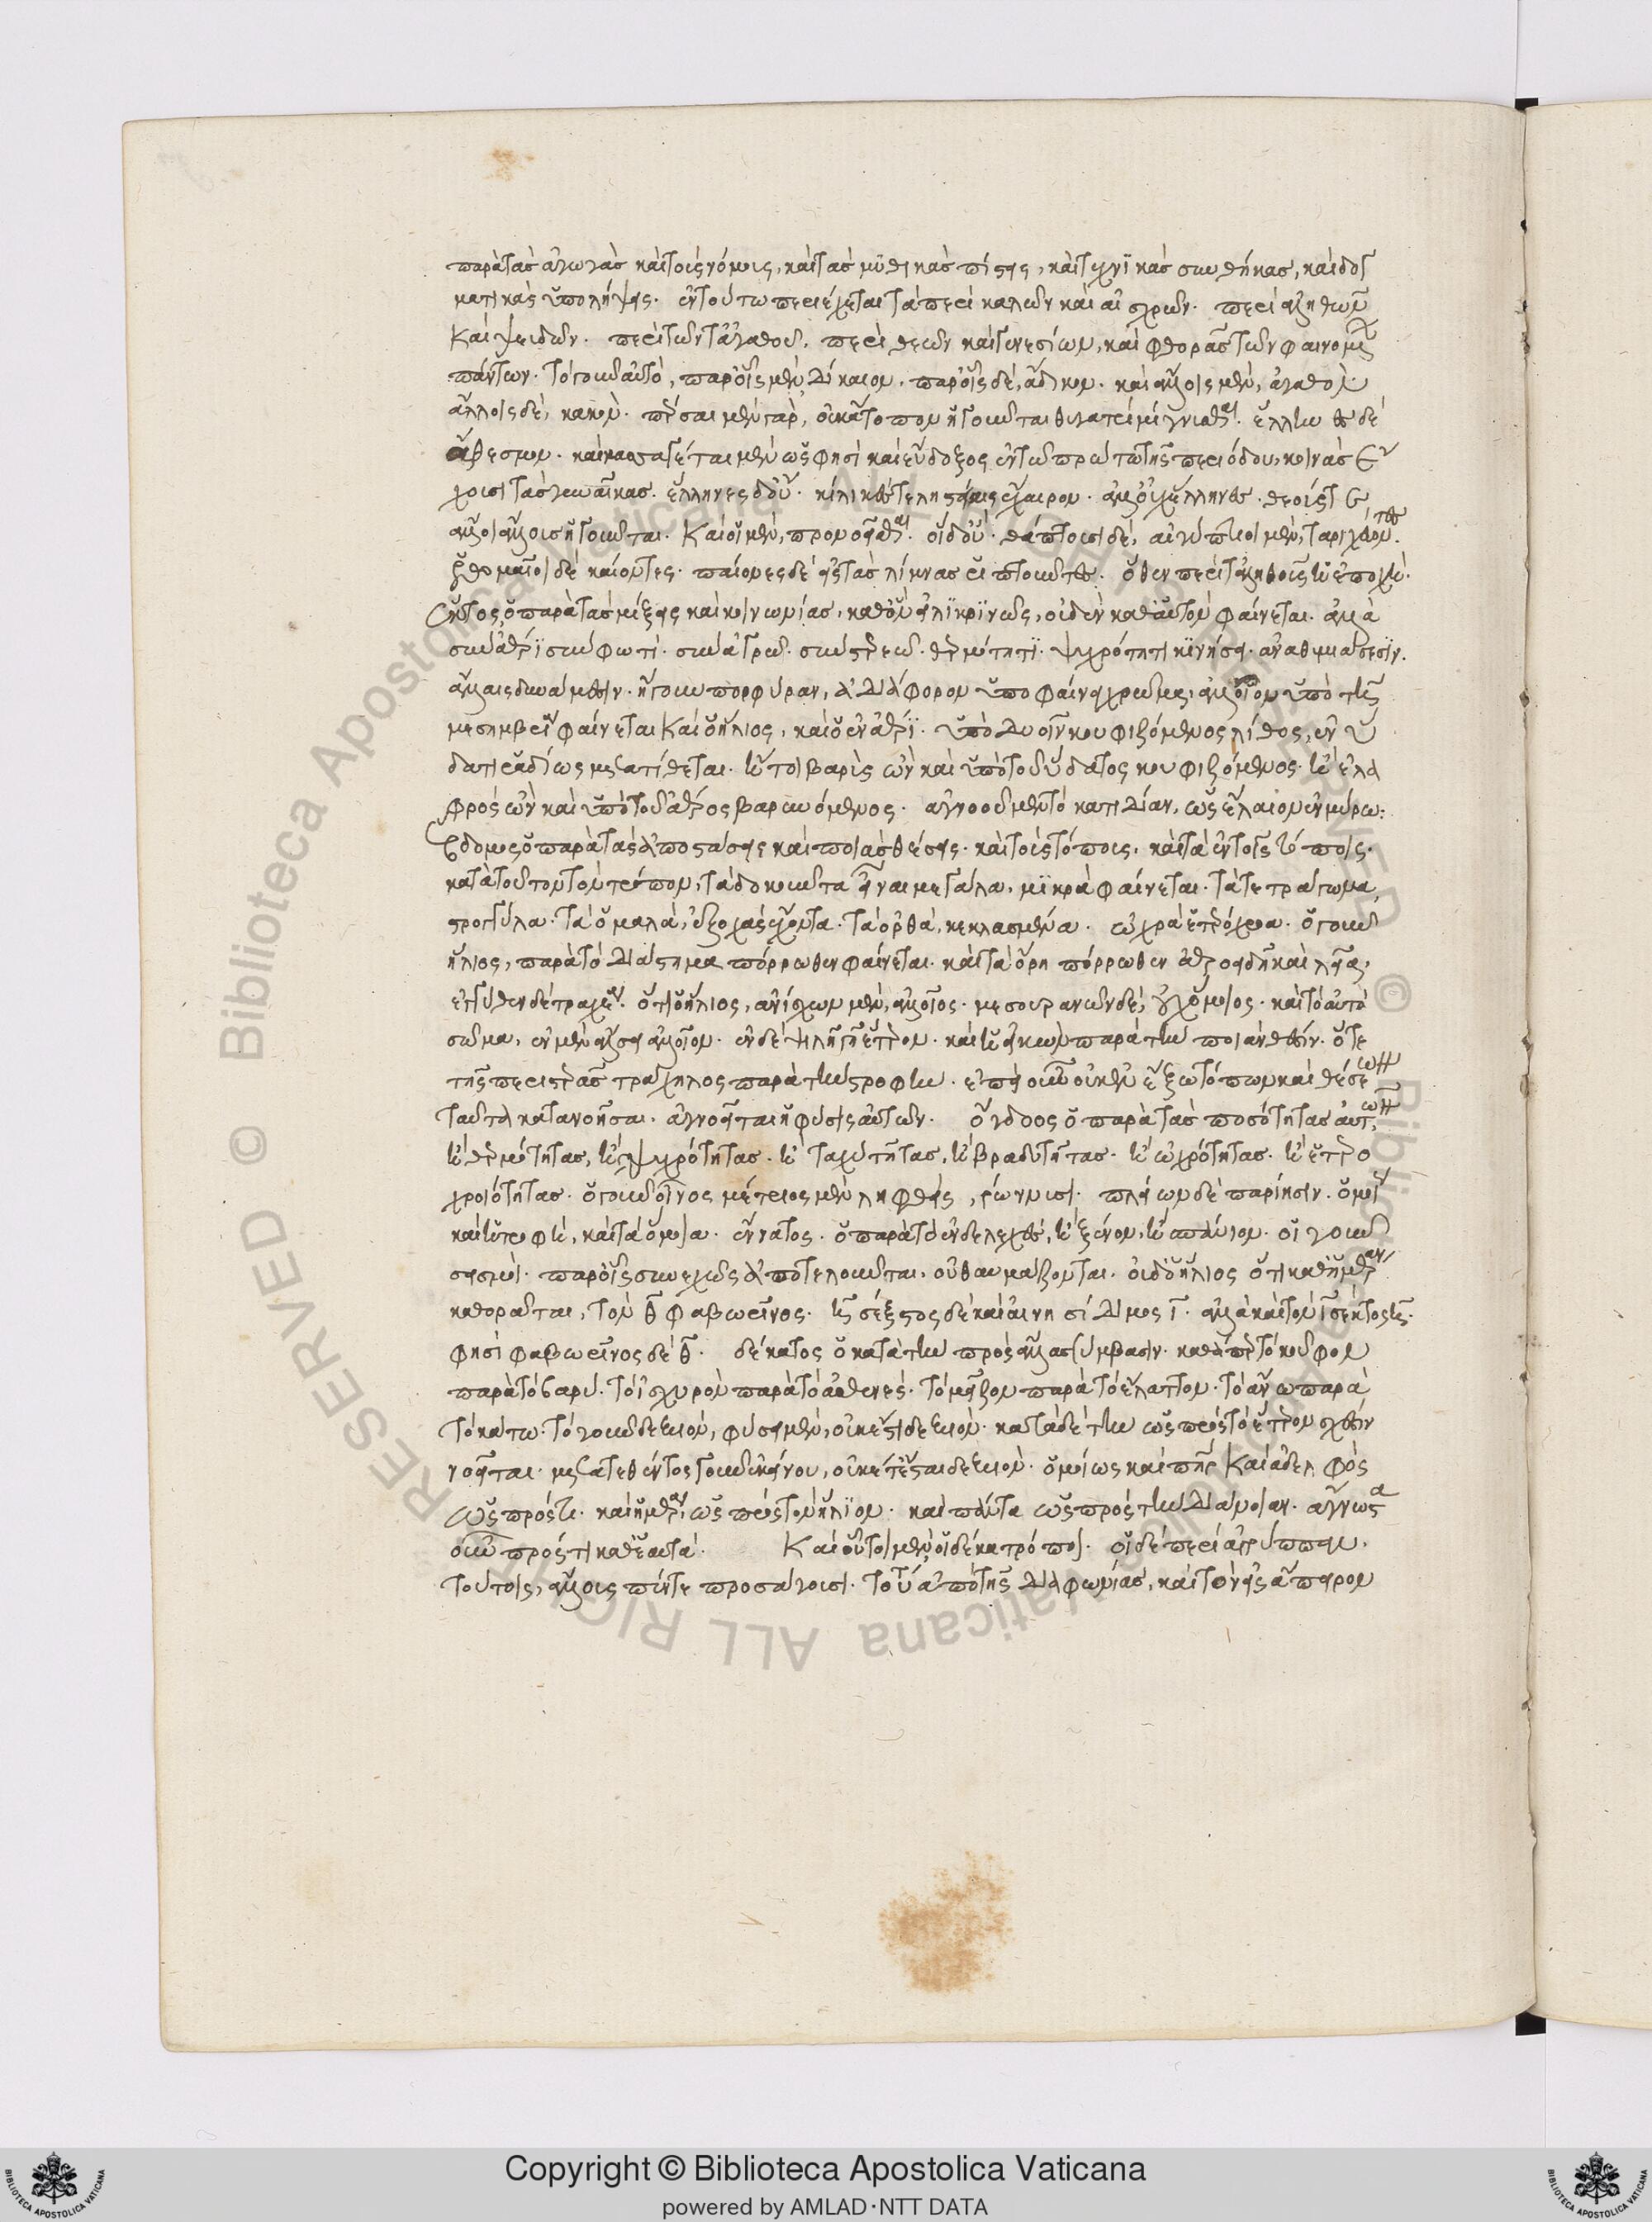 παρὰ τὰς ἀγωγὰς καὶ τοὺς νόμους, καὶ τὰς μυθικὰς πίστεις, καὶ τεχνικὰς συνθήκας, καὶ δογ
ματικὰς ὑπολήψεις. ἐν τούτω περιέχεται τὰ περὶ καλῶν καὶ αἰσχρῶν. περὶ ἀληθῶν
καὶ ψευδῶν. περὶ τῶν τἀγαθοῦ. περὶ θεῶν καὶ γενεσίων, καὶ φθορᾶς τῶν φαινομένων
πάντων. τὸ γοῦν αὐτὸ, παρ' οἷς μὲν δίκαιον. παρ' οἷς δὲ, ἄδικον. καὶ ἄλλοις μὲν, ἀγαθὸν.
ἄλλοις δὲ, κακὸν. πέρσαι μὲν γὰρ, οὐκ ἄτοπον ἡγοῦνται θυγατρὶ μίγνυσθαι. ἕλληνες δὲ
ἄθεσμον. καὶ μασσαγέται μὲν ὥς φησὶ καὶ εὔδοξος ἐν τῶ πρώτω τῆς περιόδου, κοινὰς ἔ
χουσι τὰς γυναῖκας. ἕλληνες δ' οὔ. κίλικές τε λῃσταῖς ἔχαιρον. ἀλλ' οὐχ ἕλληνες. θεούς τε
ἄλλοι ἄλλους ἡγοῦνται. καὶ οἱ μὲν, προνοεῖσθαι. οἱ δ' οὔ. θάπτουσι δὲ, αἰγύπτιοι μὲν, ταριχεύοντες.
ῥωμαῖοι δὲ καίοντες. παίονες δὲ εἰς τὰς λίμνας ῥιπτοῦντες. ὅθεν περὶ τἀληθοῦς ἡ ἐποχή.
ἕκτος, ὁ παρὰ τὰς μίξεις καὶ κοινωνίας, καθ' ὃν εἰλικρινῶς, οὐδὲν καθ' αὑτὸ φαίνεται. ἀλλὰ
σὺν ἀέρι σὺν φωτί. σὺν ὑγρῶ. σὺν στερεῶ. θερμότητι. ψυχρότητι κινήσει. ἀναθυμιάσεσιν.
ἄλλαις δυνάμεσιν. ἡ γοῦν πορφύρα, διάφορον ὑποφαίνει χρῶμα, ἀλλοῖον ὑπὸ τῆς
μεσημβρία φαίνεται καὶ ὁ ἥλιος, καὶ ὁ ἐν ἀέρι. ὑπὸ δυοῖν κουφιζόμενος λίθος, ἐν ὕ
δατι ῥαδίως μετατίθεται. ἤτοι βαρὺς ὢν καὶ ὑπὸ τοῦ ὕδατος κουφιζόμενος. ἢ ἐλα
φρὸς ὢν καὶ ὑπὸ τοῦ ἀέρος βαρυνόμενος. ἀγνοοῦμεν τὸ κατ' ἰδίαν, ὡς ἔλαιον ἐν μύρω:
ἕβδομος, ὁ παρὰ τὰς ἀποστάσεις καὶ ποιὰς θέσεις. καὶ τοὺς τόπους. καὶ τὰ ἐν τοῖς τόποις.
κατὰ τοῦτον τὸν τρόπον, τὰ δοκοῦντα εἶναι μεγάλα, μικρὰ φαίνεται. τὰ τετράγωνα,
στρογγύλα. τὰ ὁμαλὰ, ἐξοχὰς ἔχοντα. τὰ ὀρθὰ, κεκλασμένα. ὠχρὰ ἑτερόχροα. ὁ γοῦν
ἥλιος, παρὰ τὸ διάστημα πόρρωθεν φαίνεται. καὶ τὰ ὄρη πόρρωθεν ἀεροειδῆ καὶ λεῖα.
ἐγγύθεν δὲ τραχέα. ἔτι ὁ ἥλιος, ἀνίσχων μὲν, ἀλλοῖος. μεσουρανῶν δὲ, οὐχ ὅμοιος. καὶ τὸ αὐτὸ
σῶμα, ἐν μὲν ἄλσει ἀλλοῖον. ἐν δὲ ψιλῆ γῆ ἕτερον. καὶ ἡ εἰκὼν παρὰ τὴν ποιὰν θέσιν. ὅ τε
τῆς περιστερᾶς τράχηλος παρὰ τὴν στροφήν. ἐπεὶ οὖν οὐκ ἔνι ἔξω τόπων καὶ θέσεων
ταῦτα κατανοῆσαι. ἀγνοεῖται ἡ φύσις αὐτῶν. ὄγδοος ὁ παρὰ τὰς ποσότητας αὐτῶν,
ἢ θερμότητας, ἢ ψυχρότητας. ἢ ταχύτητας, ἢ βραδύτητας. ἢ ὠχρότητας. ἢ ἑτερο
χροιότητας. ὁ γοῦν οἶνος μέτριος μὲν ληφθεὶς, ῥώννυσι. πλείων δὲ παρίησιν. ὁμοίως
καὶ ἡ τροφὴ, καὶ τὰ ὅμοια. ἔννατος. ὁ παρὰ τὸ ἐνδελεχὲς, ἢ ξένον, ἢ σπάνιον. οἱ γοῦν
σεισμοὶ. παρ' οἷς συνεχῶς ἀποτελοῦνται, οὐ θαυμάζονται. οὐδ' ὁ ἥλιος ὅτι καθ' ἡμέραν
καθορᾶται, τὸν θ̄ φαβωρῖνος. η̄. σέξστος δὲ καὶ αἰνησίδημος ῑ. ἀλλὰ καὶ τὸν ῑ σέκτος η̄.
φησὶ φαβωρῖνος δὲ θ̄. δέκατος ὁ κατὰ τὴν πρὸς ἄλλα σύμβασιν. καθάπερ τὸ κοῦφον
παρὰ τὸ βαρύ. τὸ ἰσχυρὸν παρὰ τὸ ἀσθενές. τὸ μεῖζον παρὰ τὸ ἔλαττον. τὸ ἄνω παρὰ
τὸ κάτω. τὸ γοῦν δεξιὸν, φύσει μὲν, οὐκ ἔστι δεξιὸν. κατὰ δὲ τὴν ὡς πρὸς τὸ ἕτερον σχέσιν
νοεῖται. μετατεθέντος γοῦν ἐκείνου, οὐκέτ' ἔσται δεξιὸν. ὁμοίως καὶ πατὴρ καὶ ἀδελφὸς
ὡς πρός τι. καὶ ἡμέρα ὡς πρὸς τὸν ἥλιον. καὶ πάντα ὡς πρὸς τὴν διάνοιαν. ἄγνωστα
οὖν πρός τι καθ' ἑαυτά. καὶ οὗτοι μὲν οἱ δέκα τρόποι. οἱ δὲ περὶ ἀγρίππαν.
τούτοις, ἄλλους πέντε προσάγουσι. τόν τ' ἀπὸ τῆς διαφωνίας, καὶ τὸν εἰς ἄπειρον
Copyright © Biblioteca Apostolica Vaticana
powered by AMLAD·NTT DATA